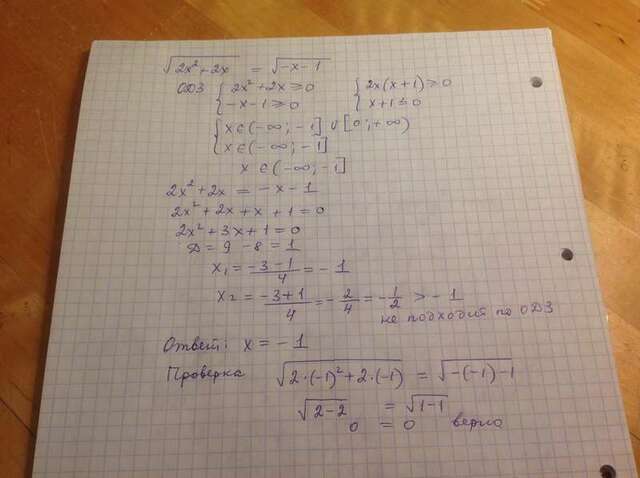 √(2x² + 2x) = √(-x - 1)
ОДЗ { 2x² + 2x ≥ 0 { 2x(x + 1) ≥ 0
{ -x - 1 ≥ 0 { x + 1 ≤ 0
{ x ∈ (-∞; -1] ∪ [0; +∞)
{ x ∈ (-∞; -1]
x ∈ (-∞; -1]
2x² + 2x = -x - 1
2x² + 2x + x + 1 = 0
2x² + 3x + 1 = 0
Д = 9 - 8 = 1
x₁ = (-3 - 1)/4 = -1
x₂ = (-3 + 1)/4 = -2/4 = -1/2 > -1
не подходит по ОДЗ
Ответ: x = -1
Проверка √(2·(-1)² + 2·(-1)) = √(-(-1) - 1)
√(2 - 2) = √(1 - 1)
0 = 0 верно